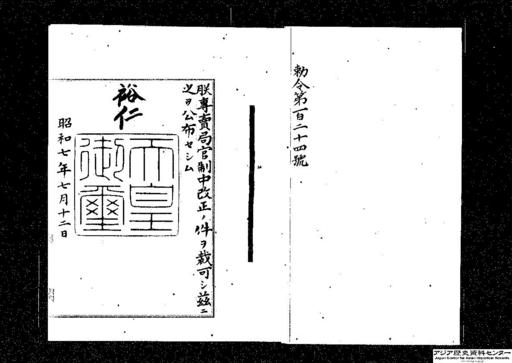 勅令第一百二十四號
朕專賣局官制中改正ノ件ヲ裁可シ茲ニ
之ヲ公布セシム
裕仁
天皇御璽
昭和七年七月十二日
アジア歴史資料センター
Japan Center for Asian Historical Records